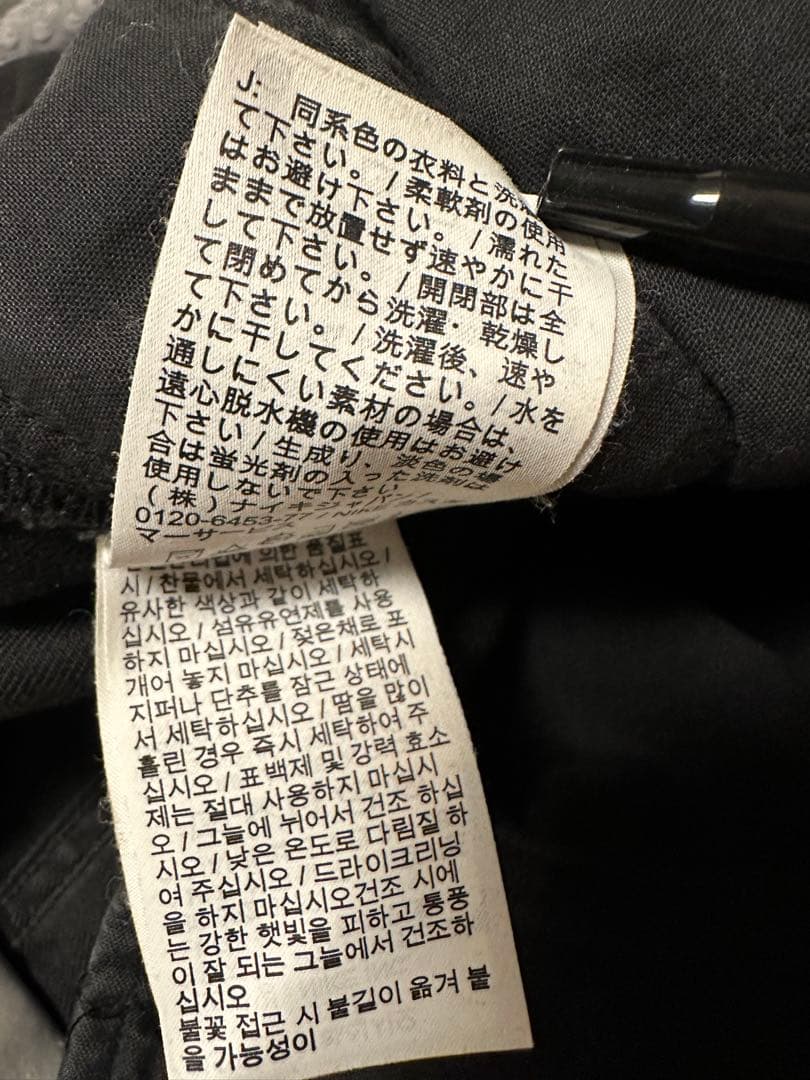 J: 同系色の衣料と洗
て下さい。/柔軟剤の使用
はお避け下さい。/濡れた
ままで放置せず速やかに干
して下さい。/開閉部は全
て閉めてから洗濯・乾燥し
て下さい。/洗濯後、速や
かに干してください。/水を
通しにくい素材の場合は、
遠心脱水機の使用はお避け
下さい/生成り、淡色の場
合は蛍光剤の入った洗剤は
使用しないで下さい。
(株)ナイキジャパン/
0120-6453-77/NIKE
의한 품질표
시/찬물에서 세탁하십시오/
유사한 색상과 같이 세탁하
십시오/섬유유연제를 사용
하지 마십시오/젖은채로 포
개어 놓지 마십시오/세탁시
지퍼나 단추를 잠근 상태에
서 세탁하십시오/땀을 많이
흘린 경우 즉시 세탁하여 주
십시오/표백제 및 강력 효소
제는 절대 사용하지 마십시
오/그늘에 뉘어서 건조 하십
시오/낮은 온도로 다림질 하
여 주십시오/드라이크리닝
을 하지 마십시오건조 시에
는 강한 햇빛을 피하고 통풍
이 잘 되는 그늘에서 건조하
십시오
불꽃 접근 시 불길이 옮겨 붙
을 가능성이